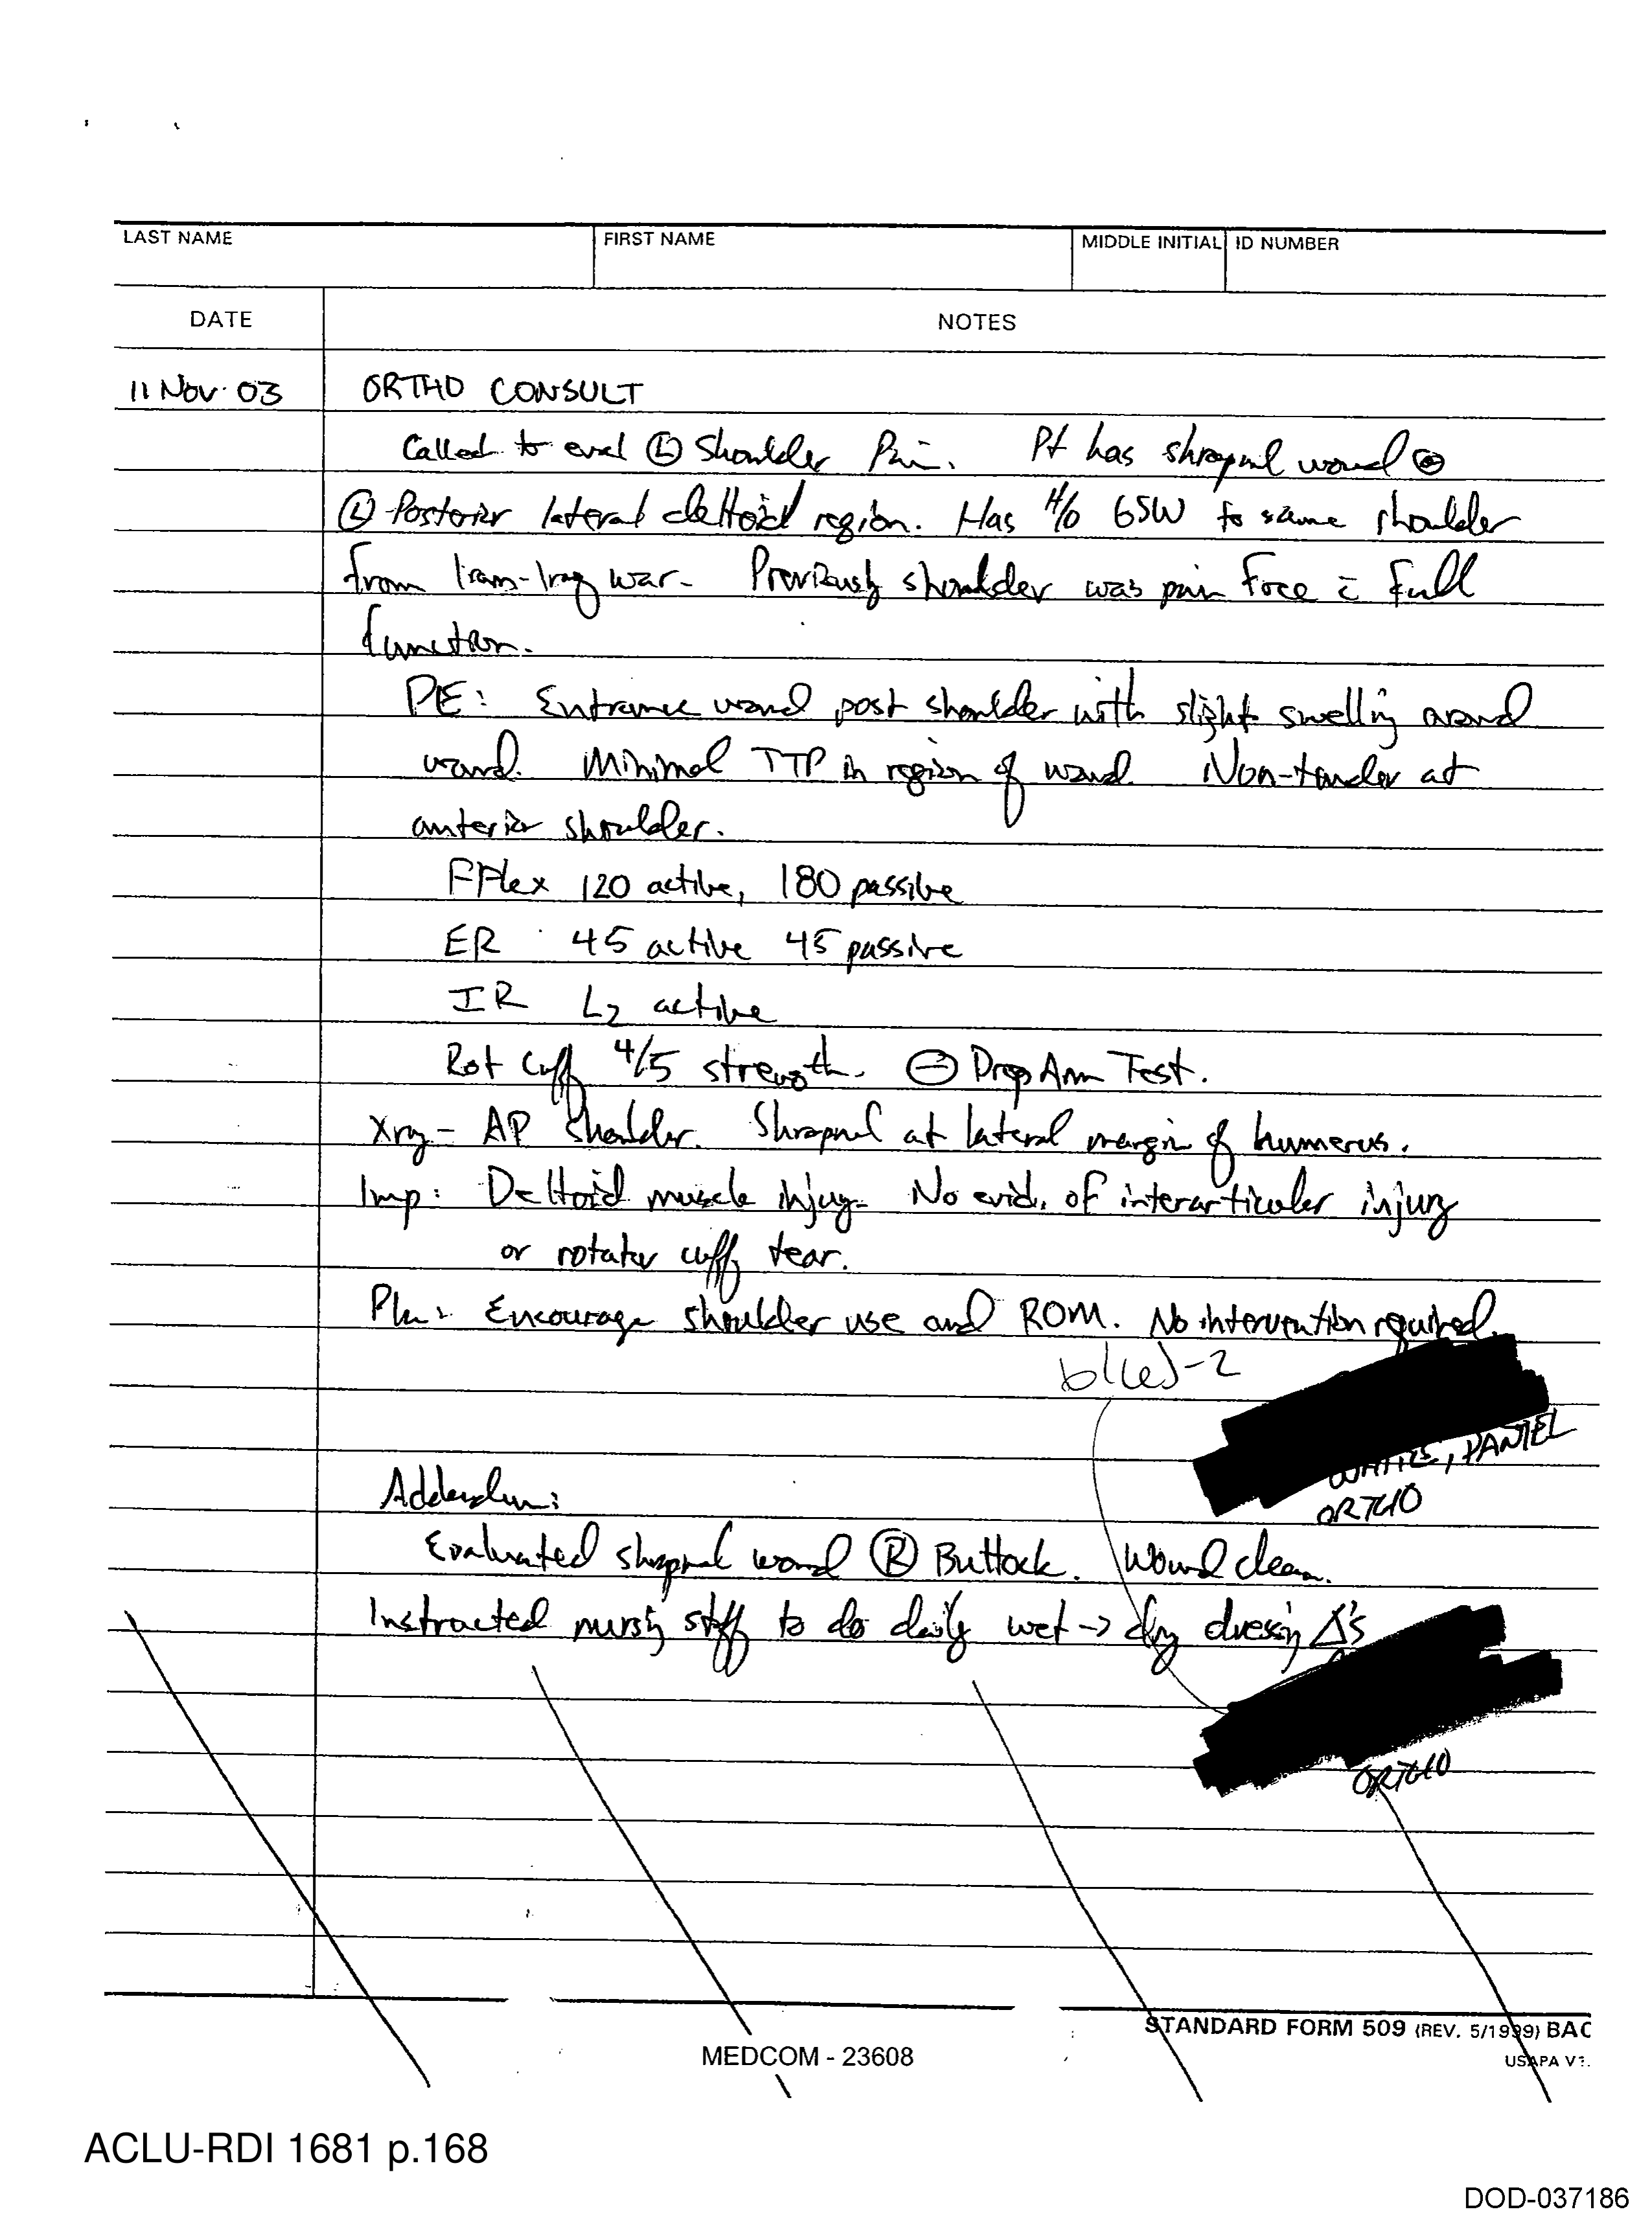 LAST NAME FIRST NAME MIDDLE INITIAL ID NUMBER
DATE NOTES
11 Nov 03 ORTHO CONSULT
Called to eval Ⓛ Shoulder Pain. Pt has shrapnel wound
Ⓛ Posterior lateral deltoid region. Has H/o GSW to same shoulder
from Iran-Iraq war. Previously shoulder was pain free c̄ full
function.
PE: Entrance wound post shoulder with slight swelling around
wound. Minimal TTP in region of wound Non-tender at
anterior shoulder.
FFlex 120 active, 180 passive
ER 45 active 45 passive
IR L2 active
Rot Cuff 4/5 strength. ⊖ Drop Arm Test.
Xray - AP Shoulder. Shrapnel at lateral margin of humerus.
Imp: Deltoid muscle injury. No evid. of interarticular injury
or rotator cuff tear.
Plan: Encourage shoulder use and ROM. No intervention required.
b(6)-2
DANIEL
ORTHO
Addendum:
Evaluated shrapnel wound Ⓡ Buttock. Wound clean.
Instructed nursing staff to do daily wet → dry dressing Δ's
ORTHO
STANDARD FORM 509 (REV. 5/1999) BAC
USAPA V1.
MEDCOM - 23608
ACLU-RDI 1681 p.168
DOD-037186